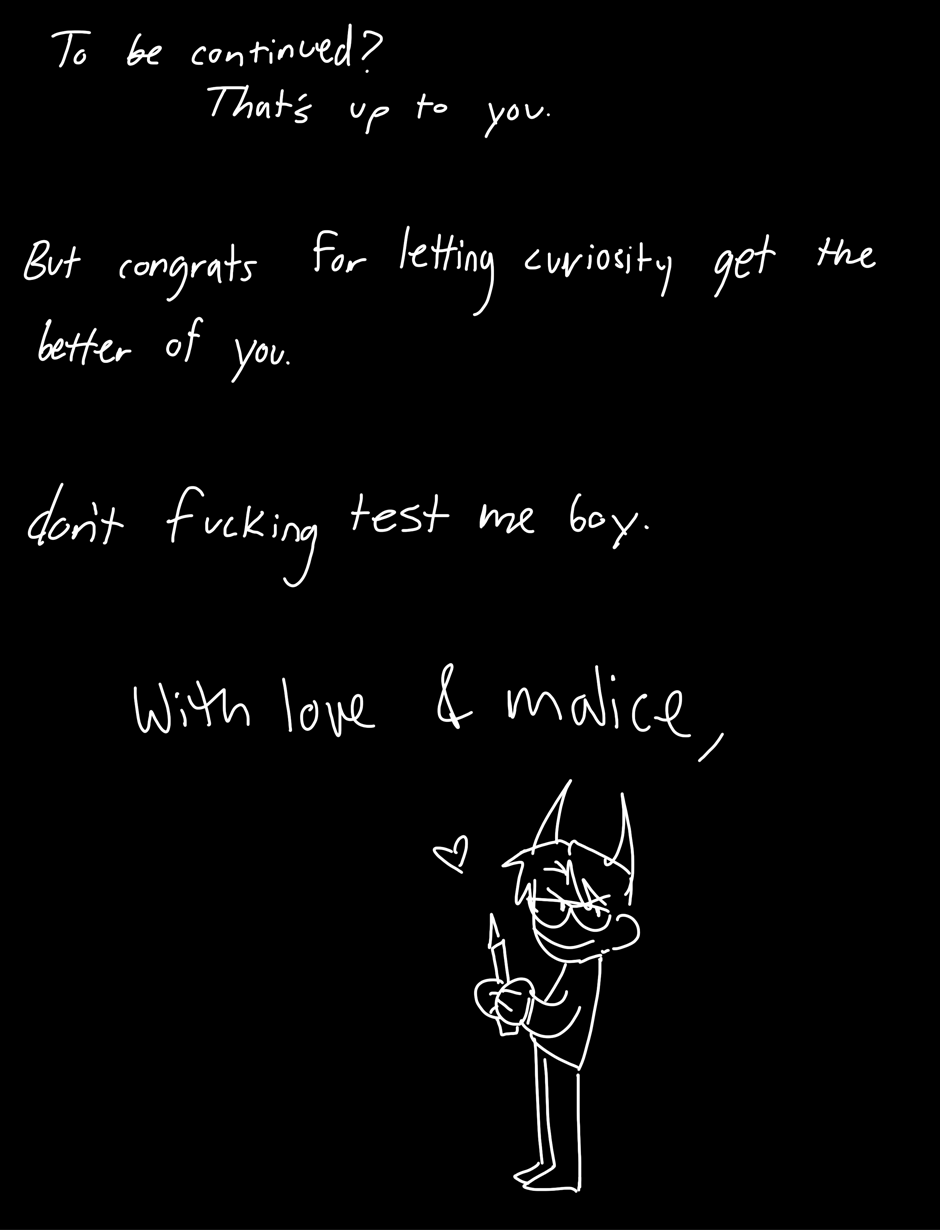 To be continued?
That's up to you.
But congrats for letting curiosity get the
better of you.
don't fucking test me boy.
With love & malice,